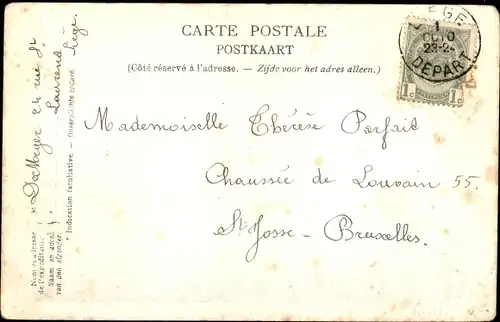 CARTE POSTALE
POSTKAART
(Côté réservé à l'adresse. — Zijde voor het adres alleen.)
LIEGE
1
OCTO
23-24
DEPART
1c 1c
Mademoiselle Thérèse Parfait
Chaussée de Louvain 55.
St Josse - Bruxelles.
Nom et adresse
de l'expéditeur.
Naam en adres
van den afzender.
24 rue St
Laurent
Liège.
* Indication facultative. — Onverplichte opgave.